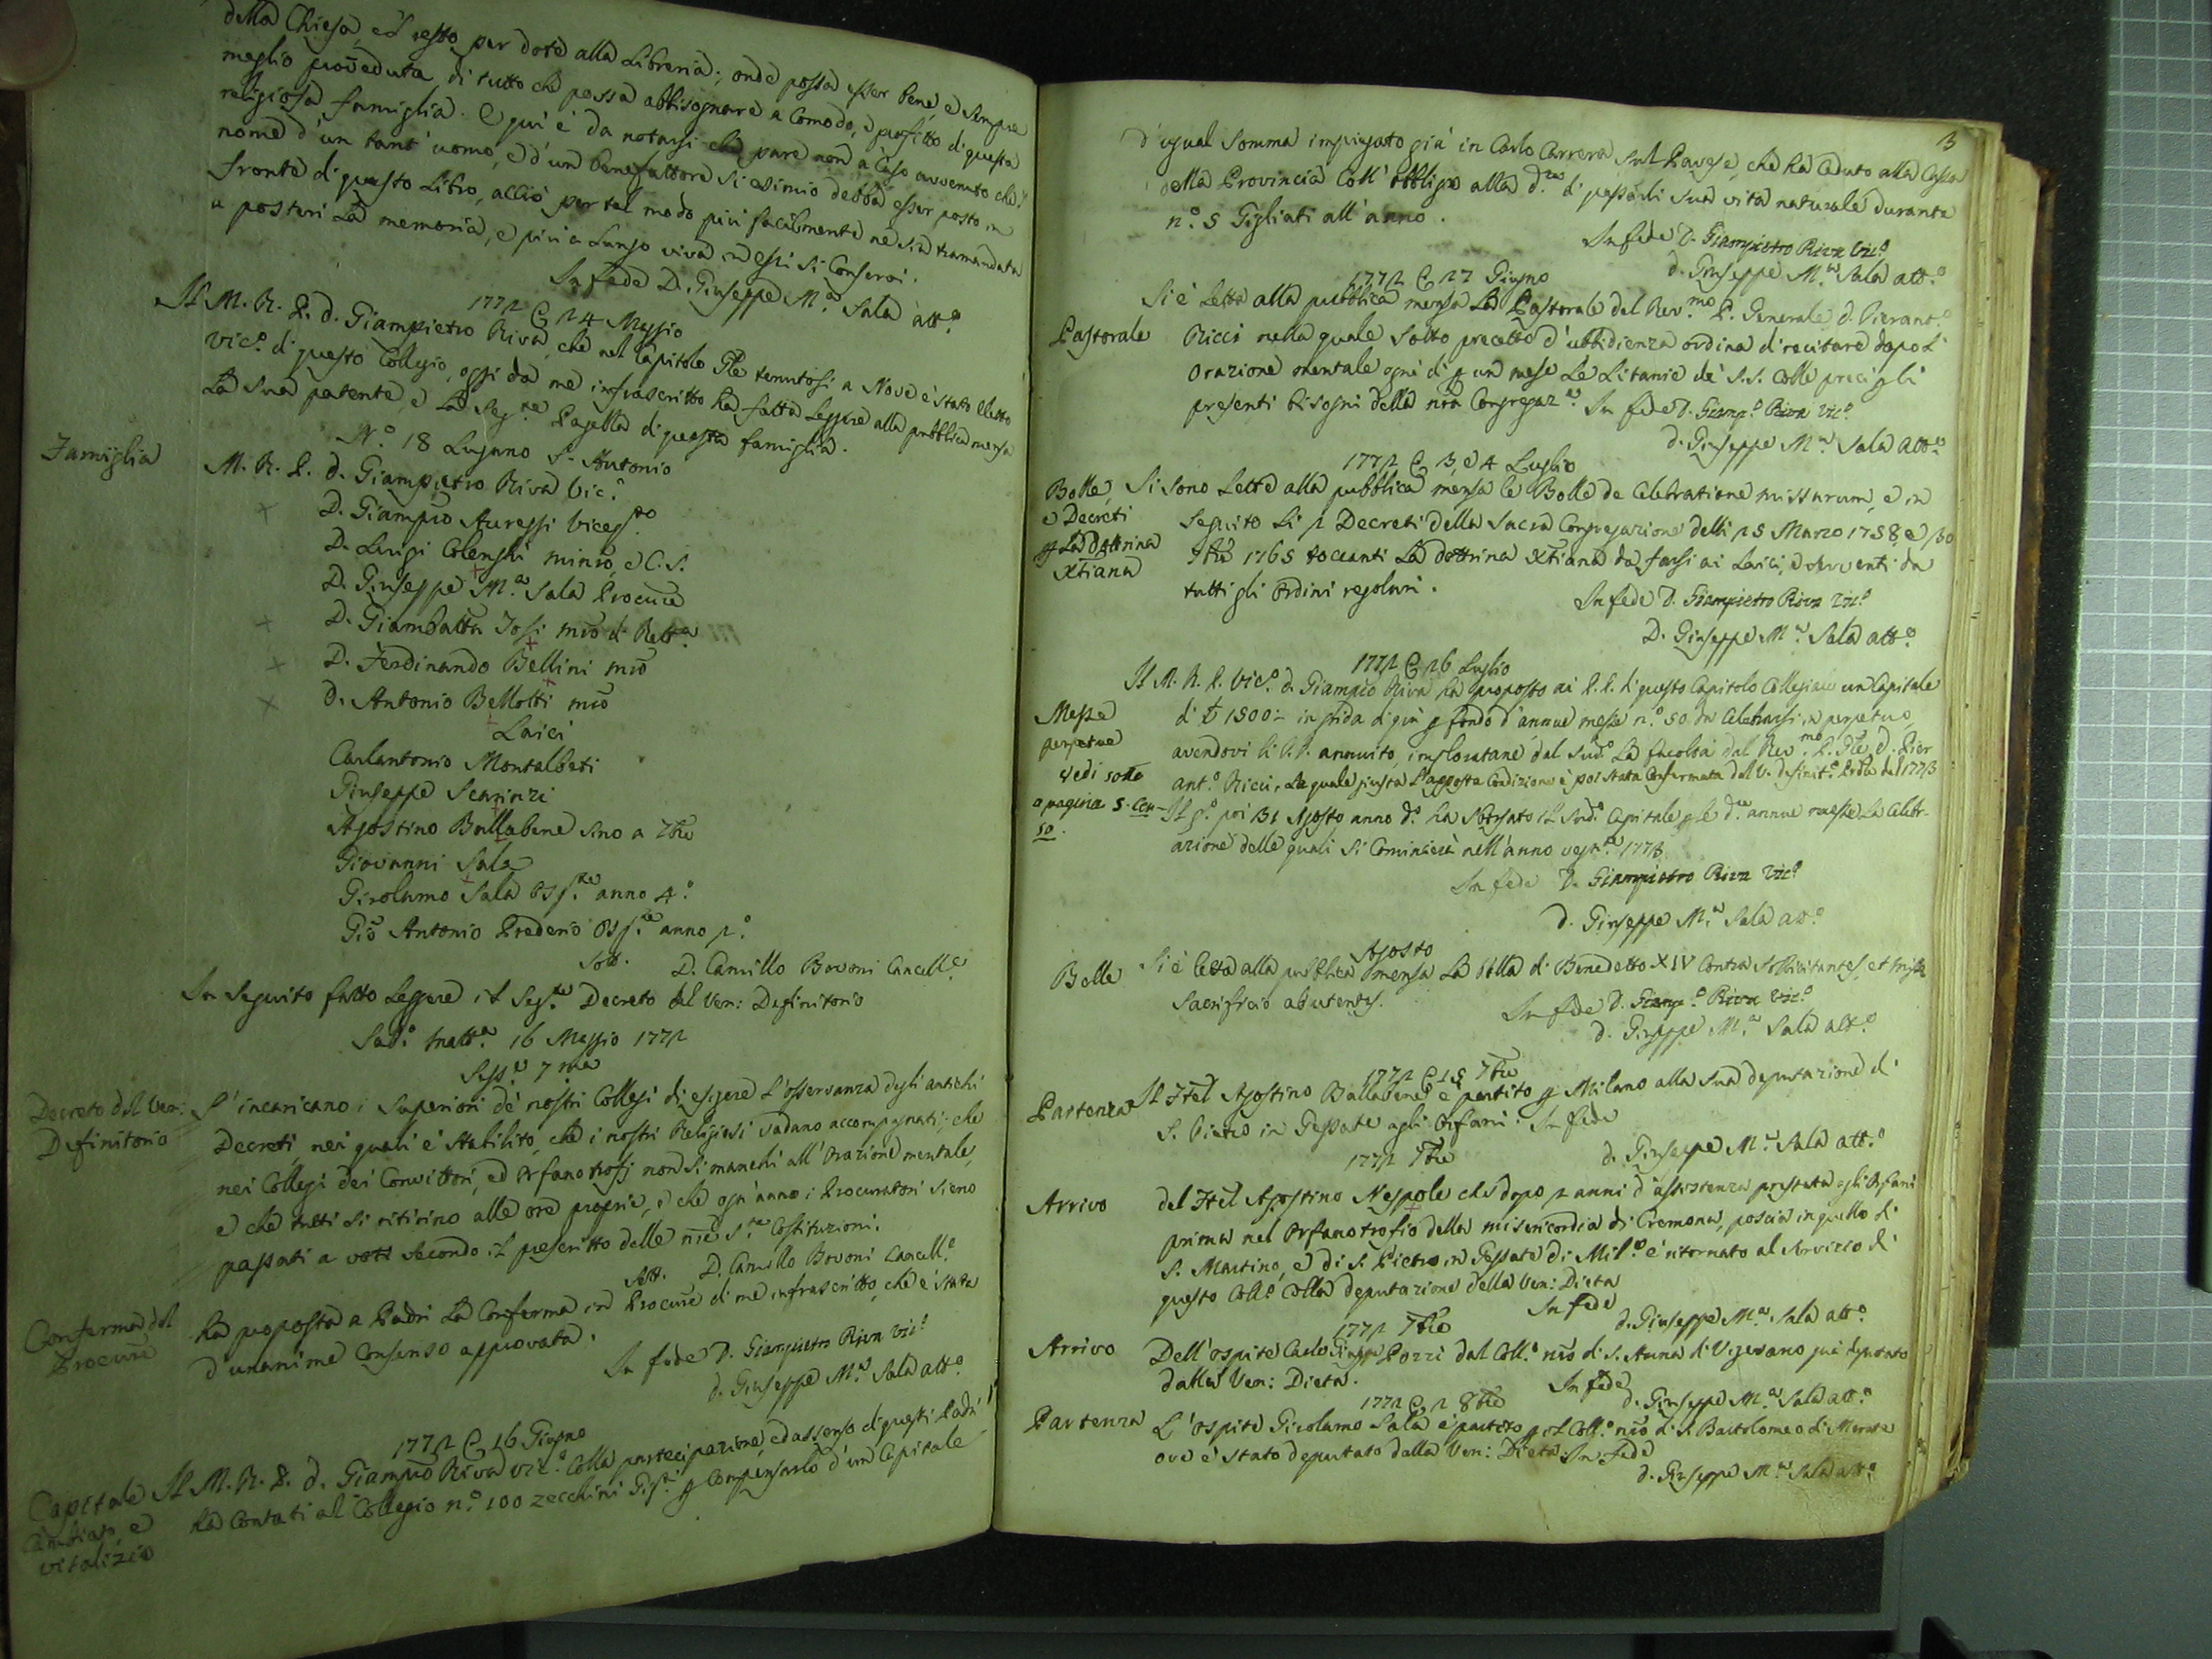 della Chiesa, e'l resto per dote alla Libreria; onde possa esser bene, e sempre
meglio proveduta di tutto che possa abbisognare a comodo, e profitto di questa
religiosa famiglia. E quì è da notarsi che pare non a caso avvenuto che'l
nome d'un tant'uomo, e d'un benefattore sì esimio debba esser posto in
fronte di questo Libro, acciò per tal modo più facilmente ne sia tramandata
a posteri la memoria, e più a lungo viva in essi si conservi.
In fede D. Giuseppe M.a Sala att.o
1772 24 Maggio
Il M. R. P. d. Giampietro Riva, che nel Capitolo Gle tenutosi a Nove è stato eletto
Vic.o di questo Collegio, oggi da me infrascritto ha fatta leggere alla pubblica mensa
la sua patente, e la seg.te Pagella di questa famiglia.
Famiglia
N.o 18 Lugano S. Antonio
M. R. P. d. Giampietro Riva Vic.o
D. Giampio Auressi Viceg.to
D. Luigi Colenghi minro, e C. S.
D. Giuseppe M.a Sala Procure
D. Giambatta Josi mro di Rett.a
D. Ferdinando Bellini mro
d. Antonio Bellotti mro
Laici
Carlantonio Montalbeti
Giuseppe Scarinzi
Agostino Ballabene sino a 7bre
Giovanni Sala
Girolamo Sala Osp.te anno 4.o
Gio Antonio Prederio Osp.te anno 2.o
Sott. D. Camillo Bovoni Cancell.e
In seguito fatto leggere il seg.te Decreto del Ven: Definitorio
Sab.o matt.a 16 Maggio 1772
Sess.e 7ma
Decreto del Ven:
Definitorio
S'incaricano i Superiori de' nostri Collegi di esigere l'osservanza degli antichi
Decreti, nei quali è stabilito, che i nostri Religiosi vadano accompagnati; che
nei Collegi dei Convittori, ed Orfanotrofj non si manchi all'Orazione mentale,
e che tutti si ritirino alle ore proprie, e che ogn'anno i Procuratori sieno
passati a voti secondo il prescritto delle nre S.te Costituzioni.
Sott. D. Camillo Bovoni Cancell.e
Conferma del
Procure
Ha proposta a Padri la Conferma in Procure di me infrascritto, che è stata
d'unanime consenso approvata.
In fede D. Giampietro Riva Vic.o
d. Giuseppe M.a Sala att.o
1772 16 Giugno
Capitale
Cambiato, e
vitalizio
Il M. R. P. d. Giampio Riva Vic.o colla partecipazione, ed assenso di questi Padri
ha contati al Collegio n.o 100 zecchini Gig.ti p compensarlo d'un Capitale
3
d'egual somma impiegato già in Carlo Carrera sul Pavese, che ha ceduto alla Cassa
della Provincia coll'obbligo alla d.a di passarli sua vita naturale durante
n.o 5 Gigliati all'anno.
In fede D. Giampietro Riva Vic.o
d. Giuseppe M.a Sala att.o
1772 27 Giugno
Pastorale
Si è letta alla pubblica mensa la Pastorale del Rev.mo P. Generale d. Pierant.o
Ricci nella quale sotto precetto d'ubbidienza ordina di recitare dopo l'
orazione mentale ogni dì p un mese le Litanie de' S.S. colle preci p gli
presenti bisogni della nra Congregaz.e In fede D. Giamp.o Riva Vic.o
d. Giuseppe M.a Sala att.o
1772 3, e 4 Luglio
Bolle,
e Decreti
p la Dottrina
Xtiana
Si sono lette alla pubblica mensa le Bolle de Celebratione missarum, e in
seguito li 2 Decreti della Sacra Congregazione delli 25 Marzo 1758, e 30
7bre 1765 toccanti la dottrina Xtiana da farsi ai Laici, e serventi da
tutti gli Ordini regolari.
In fede D. Giampietro Riva Vic.o
D. Giuseppe M.a Sala att.o
1772 26 Luglio
Messe
perpetue
vedi sotto
a pagina 5.
10.
Il M. R. P. Vic.o d. Giampio Riva ha proposto ai P.P. di questo Capitolo Collegiale un Capitale
di £ 1500:- in grida di più p fondo d'annue messe n.o 50 da celebrarsi in perpetuo,
avendovi li P.P. annuito, imploratane dal sud.o la facoltà dal Rev.mo P. Gle d. Pier
ant.o Ricci, la quale giusta l'apposta condizione è poi stata confermata dal V. definit.o 1773
Il g.o poi 31 Agosto anno d.o ha sborsato il sud.o Capitale p le d.e annue messe, la celebr-
azione delle quali si comincierà nell'anno veg.te 1773.
In fede D. Giampietro Riva Vic.o
d. Giuseppe M.a Sala att.o
Agosto
Bolle
Si è letta alla pubblica mensa la Bolla di Benedetto XIV contra Sollicitantes, et missæ
Sacrificio abutentes.
In fede D. Giamp.o Riva Vic.o
d. Giuseppe M.a Sala att.o
1772 7bre
Partenza
Il Frel Agostino Ballabene è partito p Milano alla sua deputazione di
S. Pietro in Gessate agli Orfani. In fede
d. Giuseppe M.a Sala att.o
1772 7bre
Arrivo
del Frel Agostino Nespole che dopo 2 anni d'assistenza prestata agli Orfani
prima nel Orfanotrofio della misericordia di Cremona, poscia in quello di
S. Martino, e di S. Pietro in Gessate di Mil.o è ritornato al servizio di
questo Coll.o colla deputazione della Ven: Dieta
In fede
d. Giuseppe M.a Sala att.o
1772 7bre
Arrivo
Dell'ospite Carlo Giuseppe Pozzi dal Coll.o nro di S. Anna di Vigevano quì deputato
dalla Ven: Dieta.
In fede
d. Giuseppe M.a Sala att.o
1772 2 8bre
Partenza
L'ospite Girolamo Sala è partito p il Coll.o nro di S. Bartolomeo di Merate
ove è stato deputato dalla Ven: Dieta In fede
d. Giuseppe M.a Sala att.o